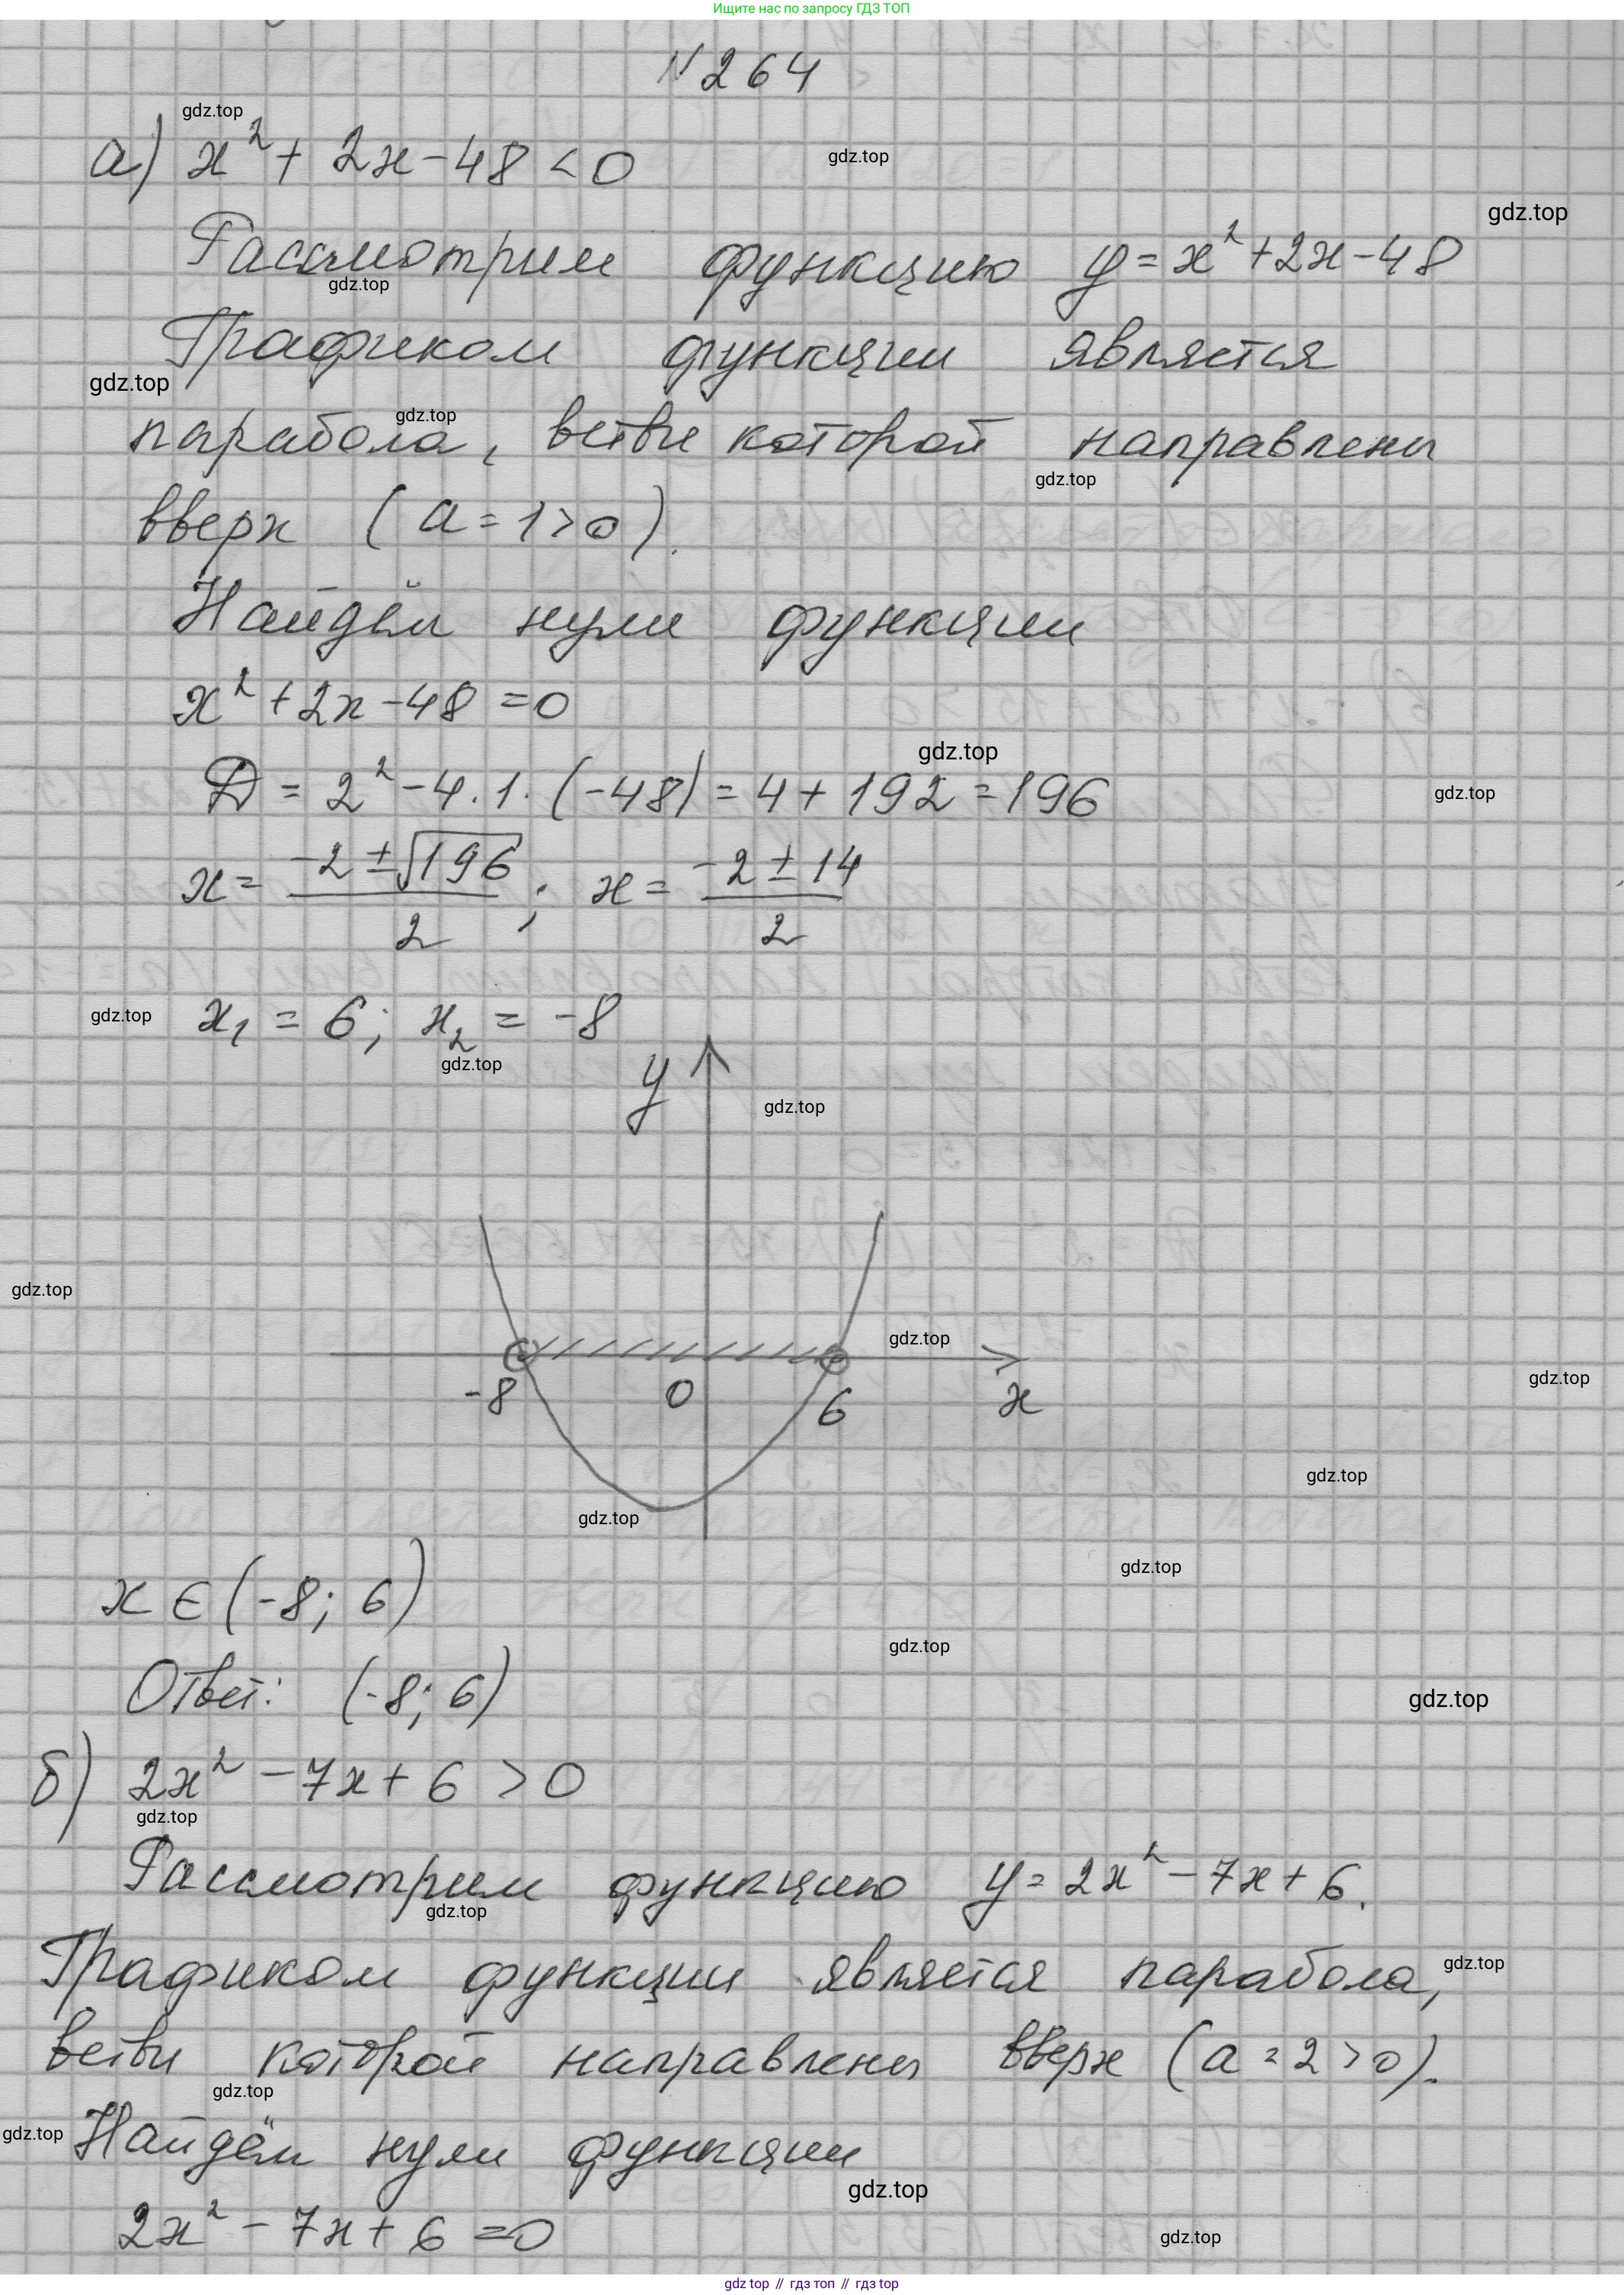 Ищите нас по запросу ГДЗ ТОП
№264
gdz.top
а) x² + 2x - 48 < 0
gdz.top
gdz.top
Рассмотрим функцию y = x² + 2x - 48
gdz.top
Графиком функции является
gdz.top
gdz.top
парабола, ветви которой направлены
gdz.top
вверх (a = 1 > 0).
Найдём нули функции
x² + 2x - 48 = 0
gdz.top
D = 2² - 4 · 1 · (-48) = 4 + 192 = 196
gdz.top
x = (-2 ± √196)/2 ; x = (-2 ± 14)/2
gdz.top
x₁ = 6; x₂ = -8
gdz.top
y
gdz.top
gdz.top
gdz.top
-8 0 6 x
gdz.top
gdz.top
gdz.top
gdz.top
x ∈ (-8; 6)
gdz.top
Ответ: (-8; 6)
gdz.top
б) 2x² - 7x + 6 > 0
gdz.top
Рассмотрим функцию y = 2x² - 7x + 6.
gdz.top
Графиком функции является парабола,
gdz.top
ветви которой направлены вверх (a = 2 > 0).
gdz.top
gdz.top
Найдём нули функции
gdz.top
2x² - 7x + 6 = 0
gdz.top
gdz top // гдз топ // гдз top